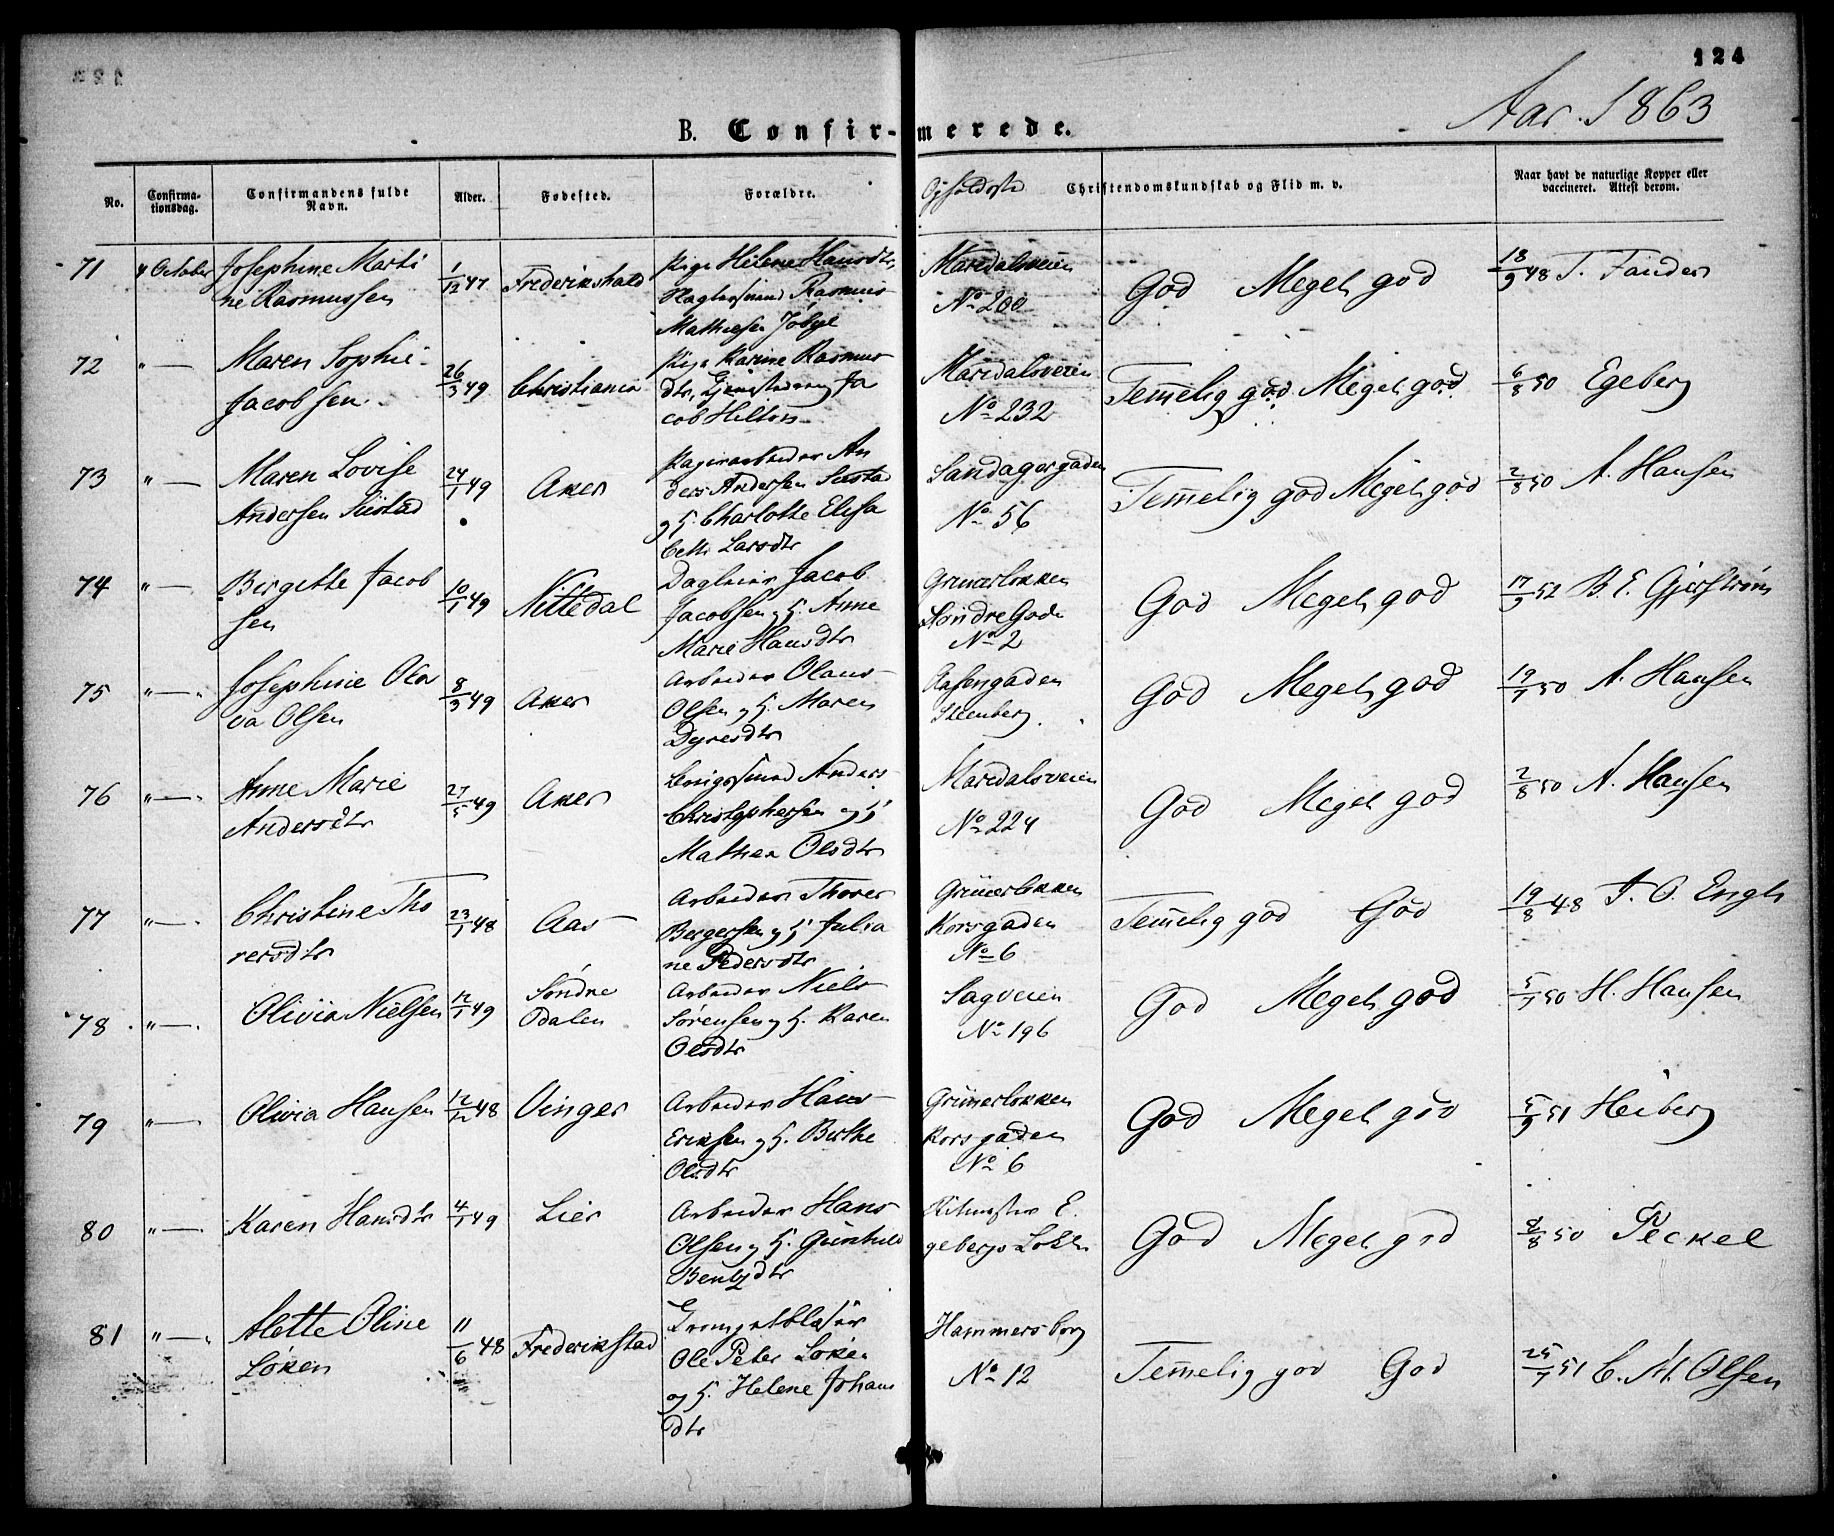 124
Aar 1863
B. Confirmerede.
No.
Confirma-
tionsdag.
Confirmandens fulde
Navn.
Alder.
Fødested.
Forældre.
Opholdsste
Christendomskundskab og Flid m. v.
Naar havt de naturlige Kopper eller
vaccineret. Attest derom.
71 4 October Josephine Marti
ne Rasmussen
1/12 47 Frederikshald
Pige Helene Hansdtr,
Rasmus
Mathiesen
Maredalsveien
No 200
God Meget god
18/9 48 T.
72 " — Maren Sophie
Jacobsen
26/3 49 Christiania
Pige Karine Rasmus
dtr, Ja
cob Hilton
Maredalsveien
No 232
Temelig god Meget god
6/8 50 Egeberg
73 " — Maren Lovise
Andersen Sæstad
24/1 49 Aker
Papirarbeider An
ders Andersen Sæstad
og H. Charlotte Elisa
beth Larsdtr
Sandagergaden
No 56
Temelig god Meget god
2/8 50 A. Hansen
74 " — Bergethe Jacob
sen
10/1 49 Nittedal
Dagleier Jacob
Jacobsen og H. Anne
Marie Hansdtr
Grünerløkken
Søndre Gade
No 2
God Meget god
17/9 52 B. E. Gjerstrøm
75 " — Josephine Ola
va Olsen
8/3 49 Aker
Arbeider Olaus
Olsen og H. Maren
Dyresdtr
Aasengaden
Steenberg.
God Meget god
19/7 50 A. Hansen
76 " — Anne Marie
Andersdtr
27/5 49 Aker
Anders
Christophersen og H
Mathea Olsdtr
Maredalsveien
No 224
God Meget god
2/8 50 A. Hansen
77 " — Christine Tho
rersdtr
23/1 48 Aas
Arbeider Thorer
Bergersen og H Julia
ne Pedersdtr
Grünerløkken
Korsgaden
No 6
Temelig god God
19/8 48 T. O. Engh
78 " — Olivia Nielsen
12/1 49 Søndre
Odalen
Arbeider Niels
Sørensen og H. Karen
Olsdtr
Sagveien
No 196
God Meget god
5/7 50 H. Hansen
79 " — Olivia Hansen
12/12 48 Vinger
Arbeider Hans
Eriksen og H. Birthe
Olsdtr
Grünerløkken
Korsgaden
No 6
God Meget god
5/9 51 Heiberg
80 " — Karen Hansdtr
4/1 49 Lier
Arbeider Hans
Olsen og H. Gunhild
Bentsdtr
Ritmester E
gebergs Løkke
God Meget god
8/8 50 Peckel
81 " — Alette Oline
Løken
11/6 48 Frederikstad
Trompetblæser
Ole Peter Løken
og H. Helene Johans
dtr
Hammersborg
No 12
Temelig god God
25/7 51 C. M. Olsen